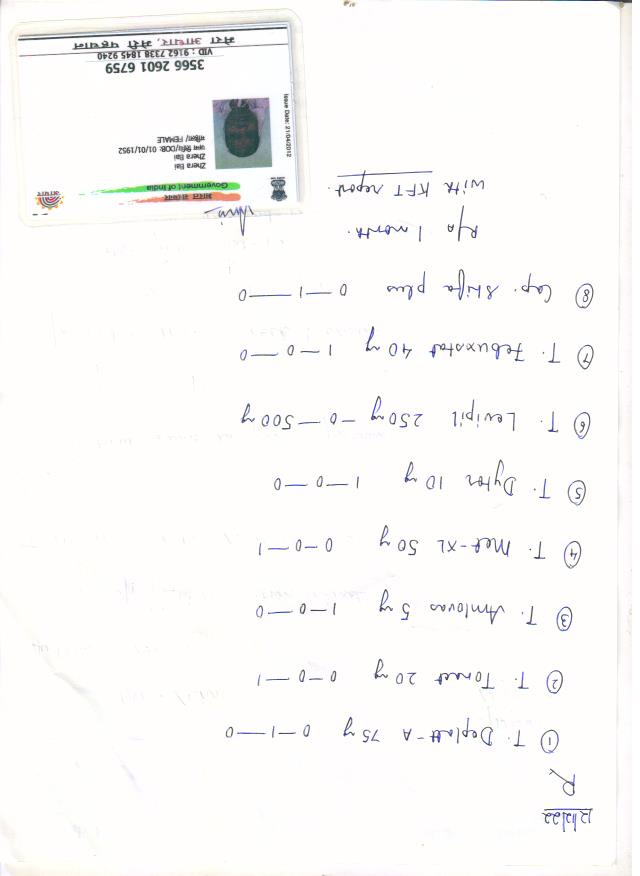 12/12/22
Rx
① T. Deplatt-A 75 mg 0—1—0
② T. Tonact 20 mg 0—0—1
③ T. Amlovas 5 mg 1—0—0
④ T. Met-XL 50 mg 0—0—1
⑤ T. Dytor 10 mg 1—0—0
⑥ T. Levipil 250 mg —0—500 mg
⑦ T. Febuxstat 40 mg 1—0—0
⑧ Cap. Shifa plus 0—1—0
R/A 1 month.
with KFT report.
भारत सरकार
Government of India
Zhera Bai
Zhera Bai
जन्म तिथि/DOB: 01/01/1952
महिला/ FEMALE
Issue Date: 21/04/2012
3566 2601 6759
VID : 9162 7338 1845 9240
मेरा आधार, मेरी पहचान
आधार